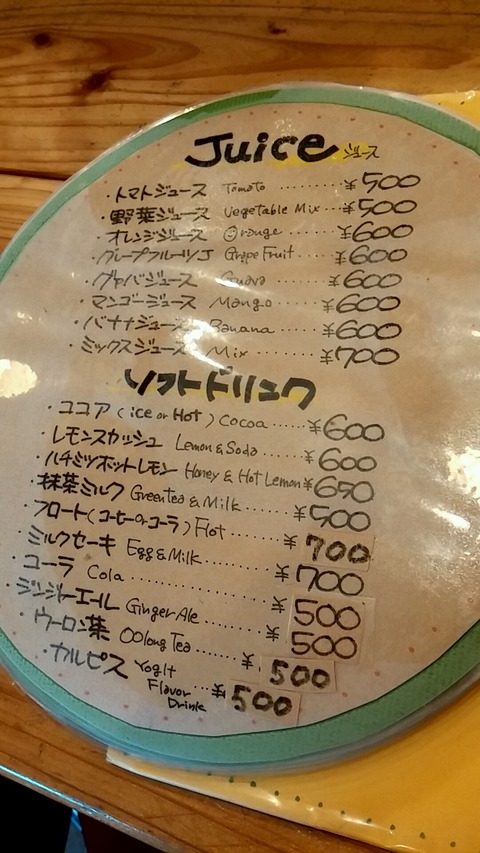 Juice ジュース
・トマトジュース Tomato ........ ¥500
・野菜ジュース Vegetable Mix ... ¥500
・オレンジジュース Orange ....... ¥600
・グレープフルーツJ Grape Fruit .... ¥600
・グァバジュース Guava ....... ¥600
・マンゴージュース Mango ....... ¥600
・バナナジュース Banana ...... ¥600
・ミックスジュース Mix ........ ¥700
ソフトドリンク
・ココア (ice or Hot) Cocoa .... ¥600
・レモンスカッシュ Lemon & Soda ..... ¥600
・ハチミツホットレモン Honey & Hot Lemon ¥650
・抹茶ミルク Green tea & Milk ..... ¥500
・フロート (コーヒーorコーラ) Flot ..... ¥700
・ミルクセーキ Egg & Milk ........ ¥700
・コーラ Cola ............ ¥500
・ジンジャーエール Ginger Ale ....... ¥500
・ウーロン茶 Oolong Tea ...... ¥500
・カルピス Yoglt Flavor Drink ... ¥500